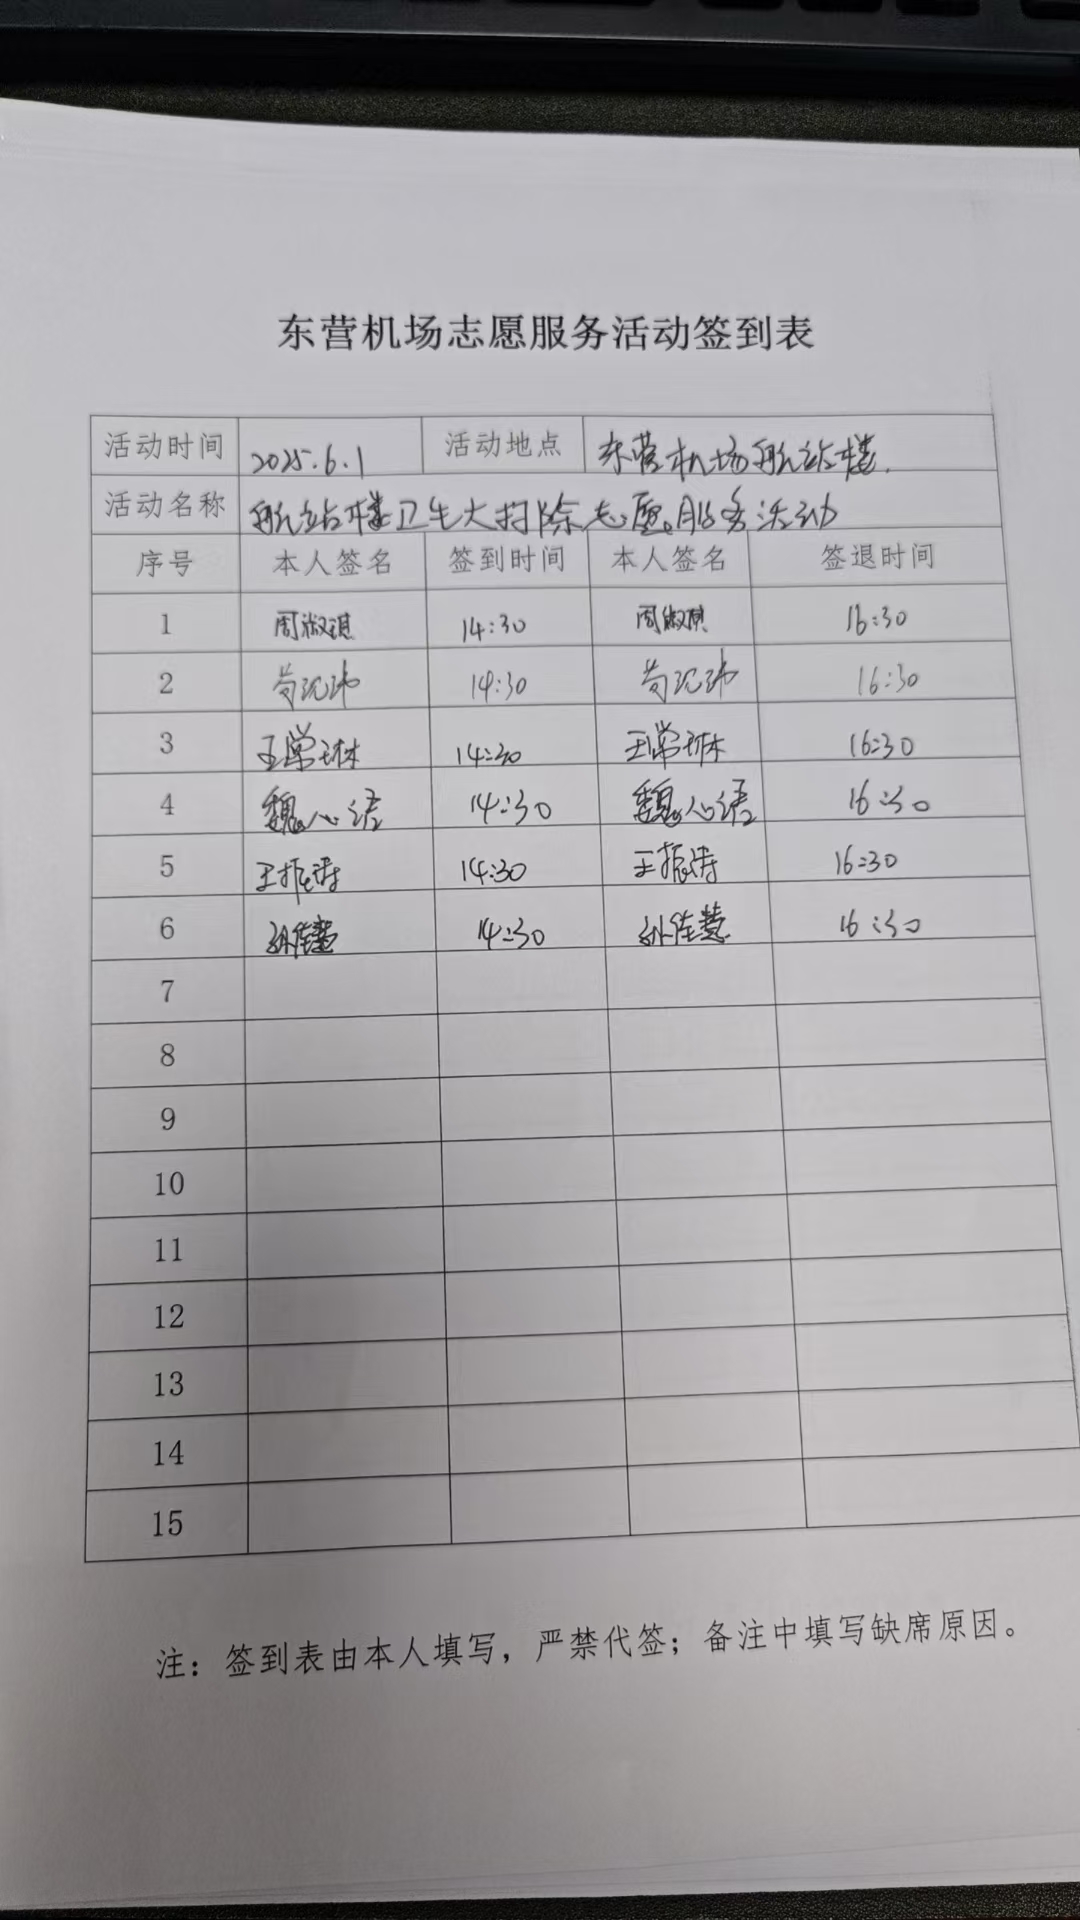 东营机场志愿服务活动签到表
活动时间 2025.6.1 活动地点 东营机场航站楼.
活动名称 航站楼卫生大扫除志愿服务活动
序号 本人签名 签到时间 本人签名 签退时间
1 周淑琪 14:30 周淑琪 16:30
2 14:30 16:30
3 王学琳 14:30 王学琳 16:30
4 魏心语 14:30 魏心语 16:30
5 王振涛 14:30 王振涛 16:30
6 孙佳慧 14:30 孙佳慧 16:30
7
8
9
10
11
12
13
14
15
注：签到表由本人填写，严禁代签；备注中填写缺席原因。